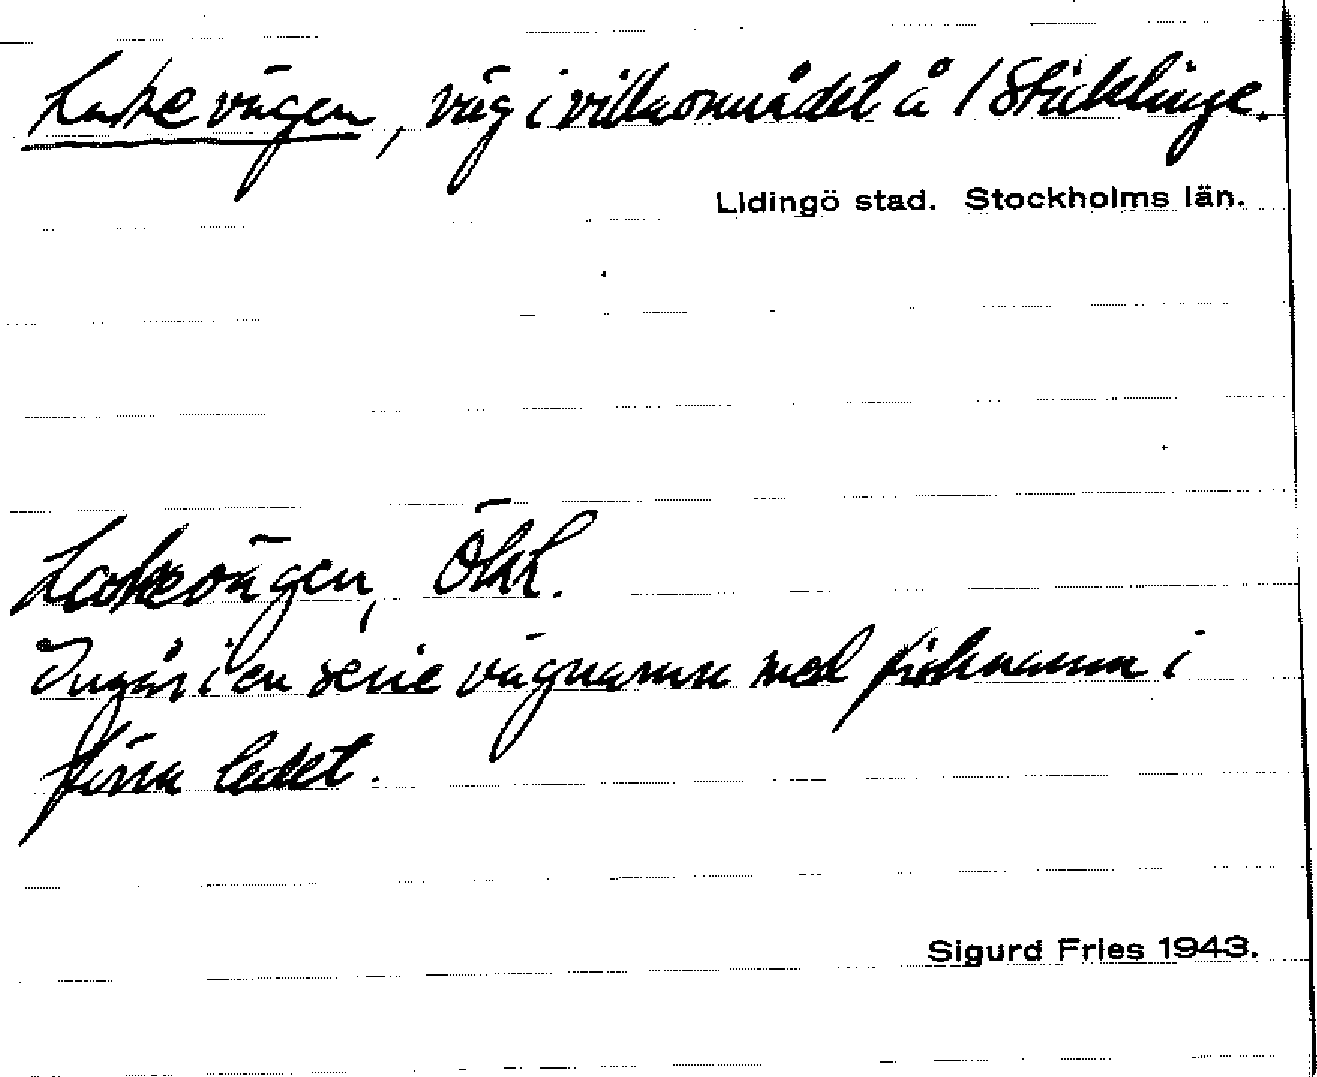 Lakevägen, väg i villaområdet å 1 Sticklinge.
Lidingö stad. Stockholms län.
Lakevägen, Ökl.
Ingår i en serie vägnamn med fisknamn i
förra ledet.
Sigurd Fries 1943.